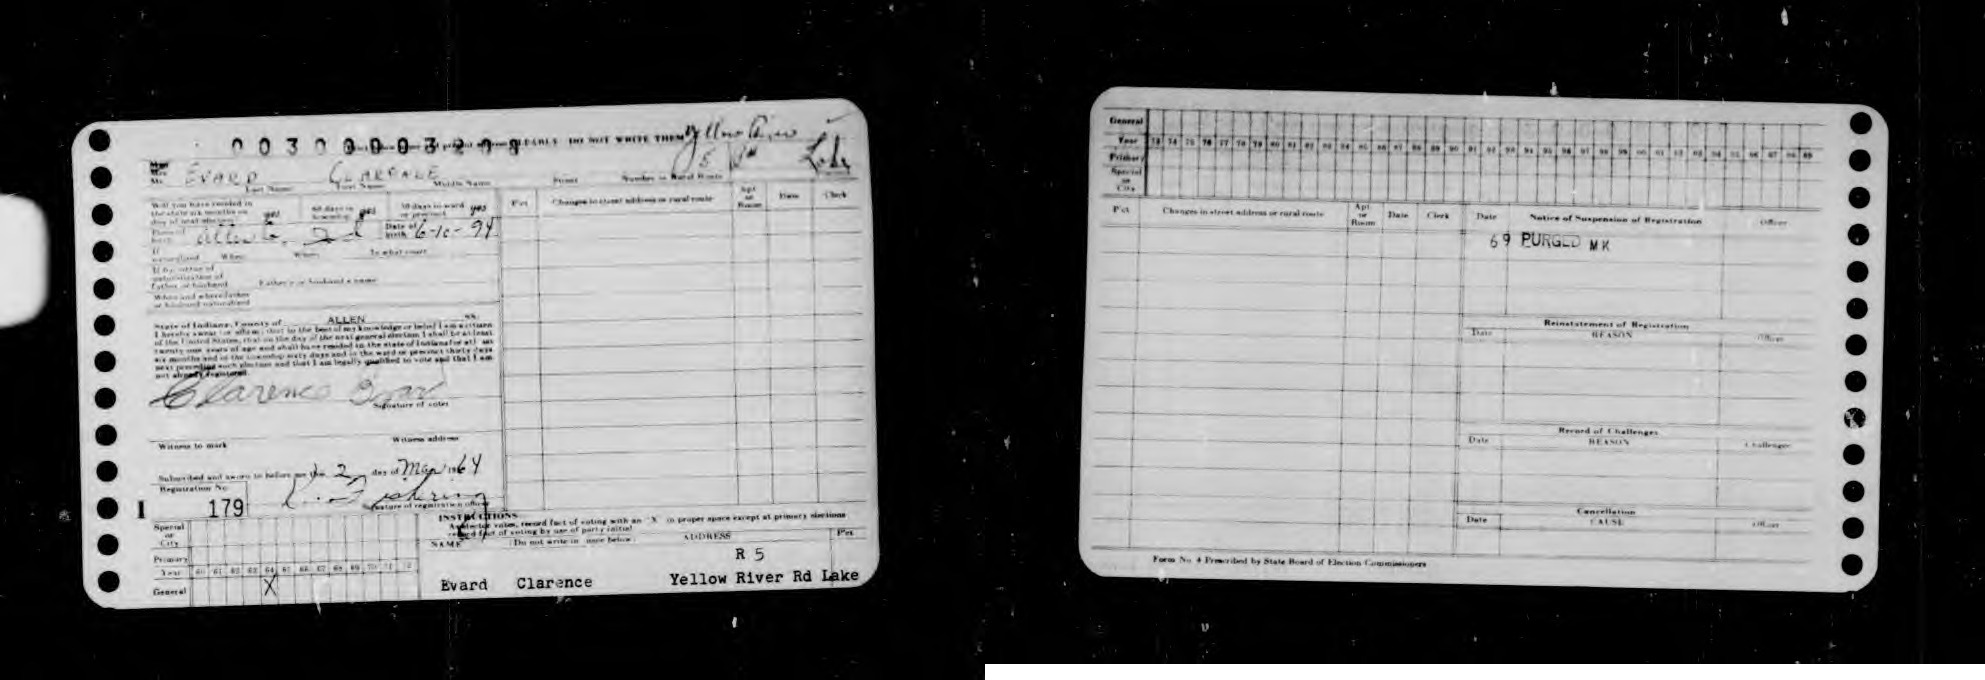 EVARD
Last Name First Name Middle Name Street Number or Rural Route
Will you have resided in the state six months on day of next election yes 60 days in township yes 30 days in ward or precinct yes
Place of birth Allen Co. Ind Date of birth 6-10-94
If naturalized When Where In what court
If by virtue of naturalization of father or husband Father's or husband's name
When and where father or husband naturalized
State of Indiana, County of ALLEN SS:
I hereby swear (or affirm) that to the best of my knowledge or belief I am a citizen
of the United States, that on the day of the next general election I shall be at least
twenty one years of age and shall have resided in the state of Indiana for
six months and in the township sixty days and in the ward or precinct thirty days
next preceding such election and that I am legally qualified to vote and that I am
not already registered.
Clarence Evard
Signature of voter
Witness to mark Witness address
Subscribed and sworn to before me this 2 day of Mar 1964
Signature of registration officer
Registration No.
1 179
Special or City
Primary
Year 60 61 62 63 64 65 66 67 68 69 70 71 72
General X
P'ct Changes in street address or rural route Apt or Room Date Clerk
INSTRUCTIONS
As elector votes, record fact of voting with an "X" in proper space except at primary elections
record fact of voting by use of party initial
NAME (Do not write in space below) ADDRESS P'ct
R 5
Evard Clarence Yellow River Rd Lake
General
Year 73 74 75 76 77 78 79 80 81 82 83 84 85 86 87 88 89 90 91 92 93 94 95 96 97 98 99
Primary
Special or City
P'ct Changes in street address or rural route Apt or Room Date Clerk
Date Notice of Suspension of Registration Officer
69 PURGED MK
Reinstatement of Registration
Date REASON Officer
Record of Challenges
Date REASON Challenger
Cancellation
Date CAUSE Officer
Form No. 4 Prescribed by State Board of Election Commissioners